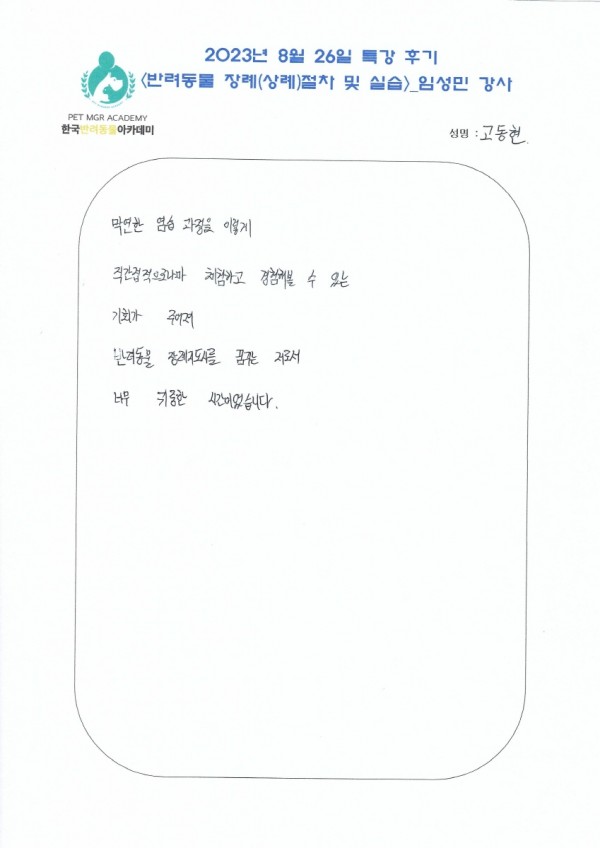 2023년 8월 26일 특강 후기
<반려동물 장례(상례)절차 및 실습>_임성민 강사
PET MGR ACADEMY
한국반려동물아카데미
성명 : 고동현.
막연한 염습 과정을 이렇게
직간접적으로나마 체험하고 경험해볼 수 있는
기회가 주어져
반려동물 장례지도사를 꿈꾸는 저로서
너무 귀중한 시간이었습니다.